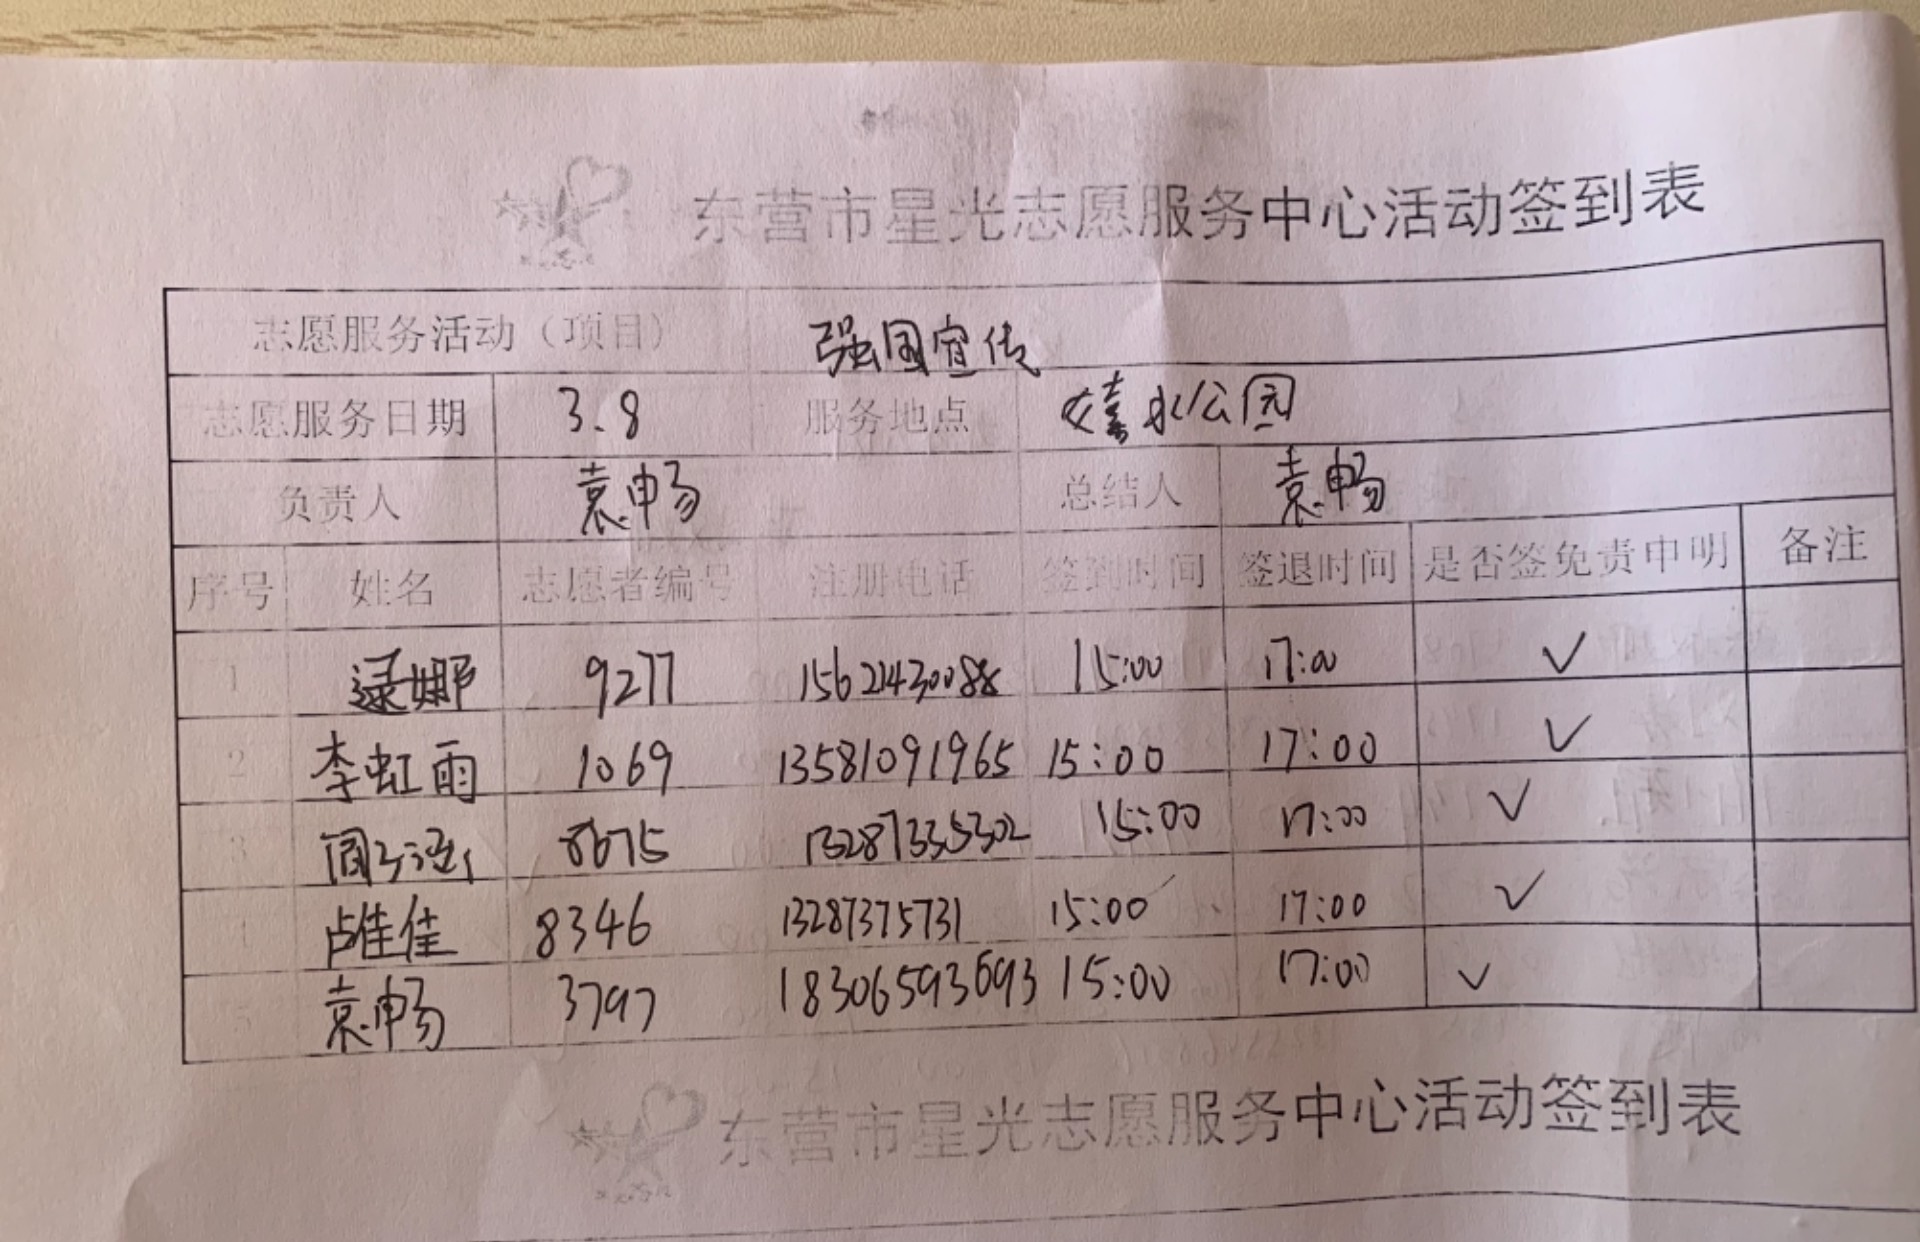 东营市星光志愿服务中心活动签到表
志愿服务活动（项目） 强国宣传
志愿服务日期 3.8 服务地点 嬉水公园
负责人 袁畅 总结人 袁畅
序号 姓名 志愿者编号 注册电话 签到时间 签退时间 是否签免责申明 备注
1 逯娜 9277 15621430088 15:00 17:00 ✓
2 李虹雨 1069 13581091965 15:00 17:00 ✓
3 8675 13287335302 15:00 17:00 ✓
4 占佳佳 8346 13287375731 15:00 17:00 ✓
5 袁畅 3797 18306593693 15:00 17:00 ✓
东营市星光志愿服务中心活动签到表